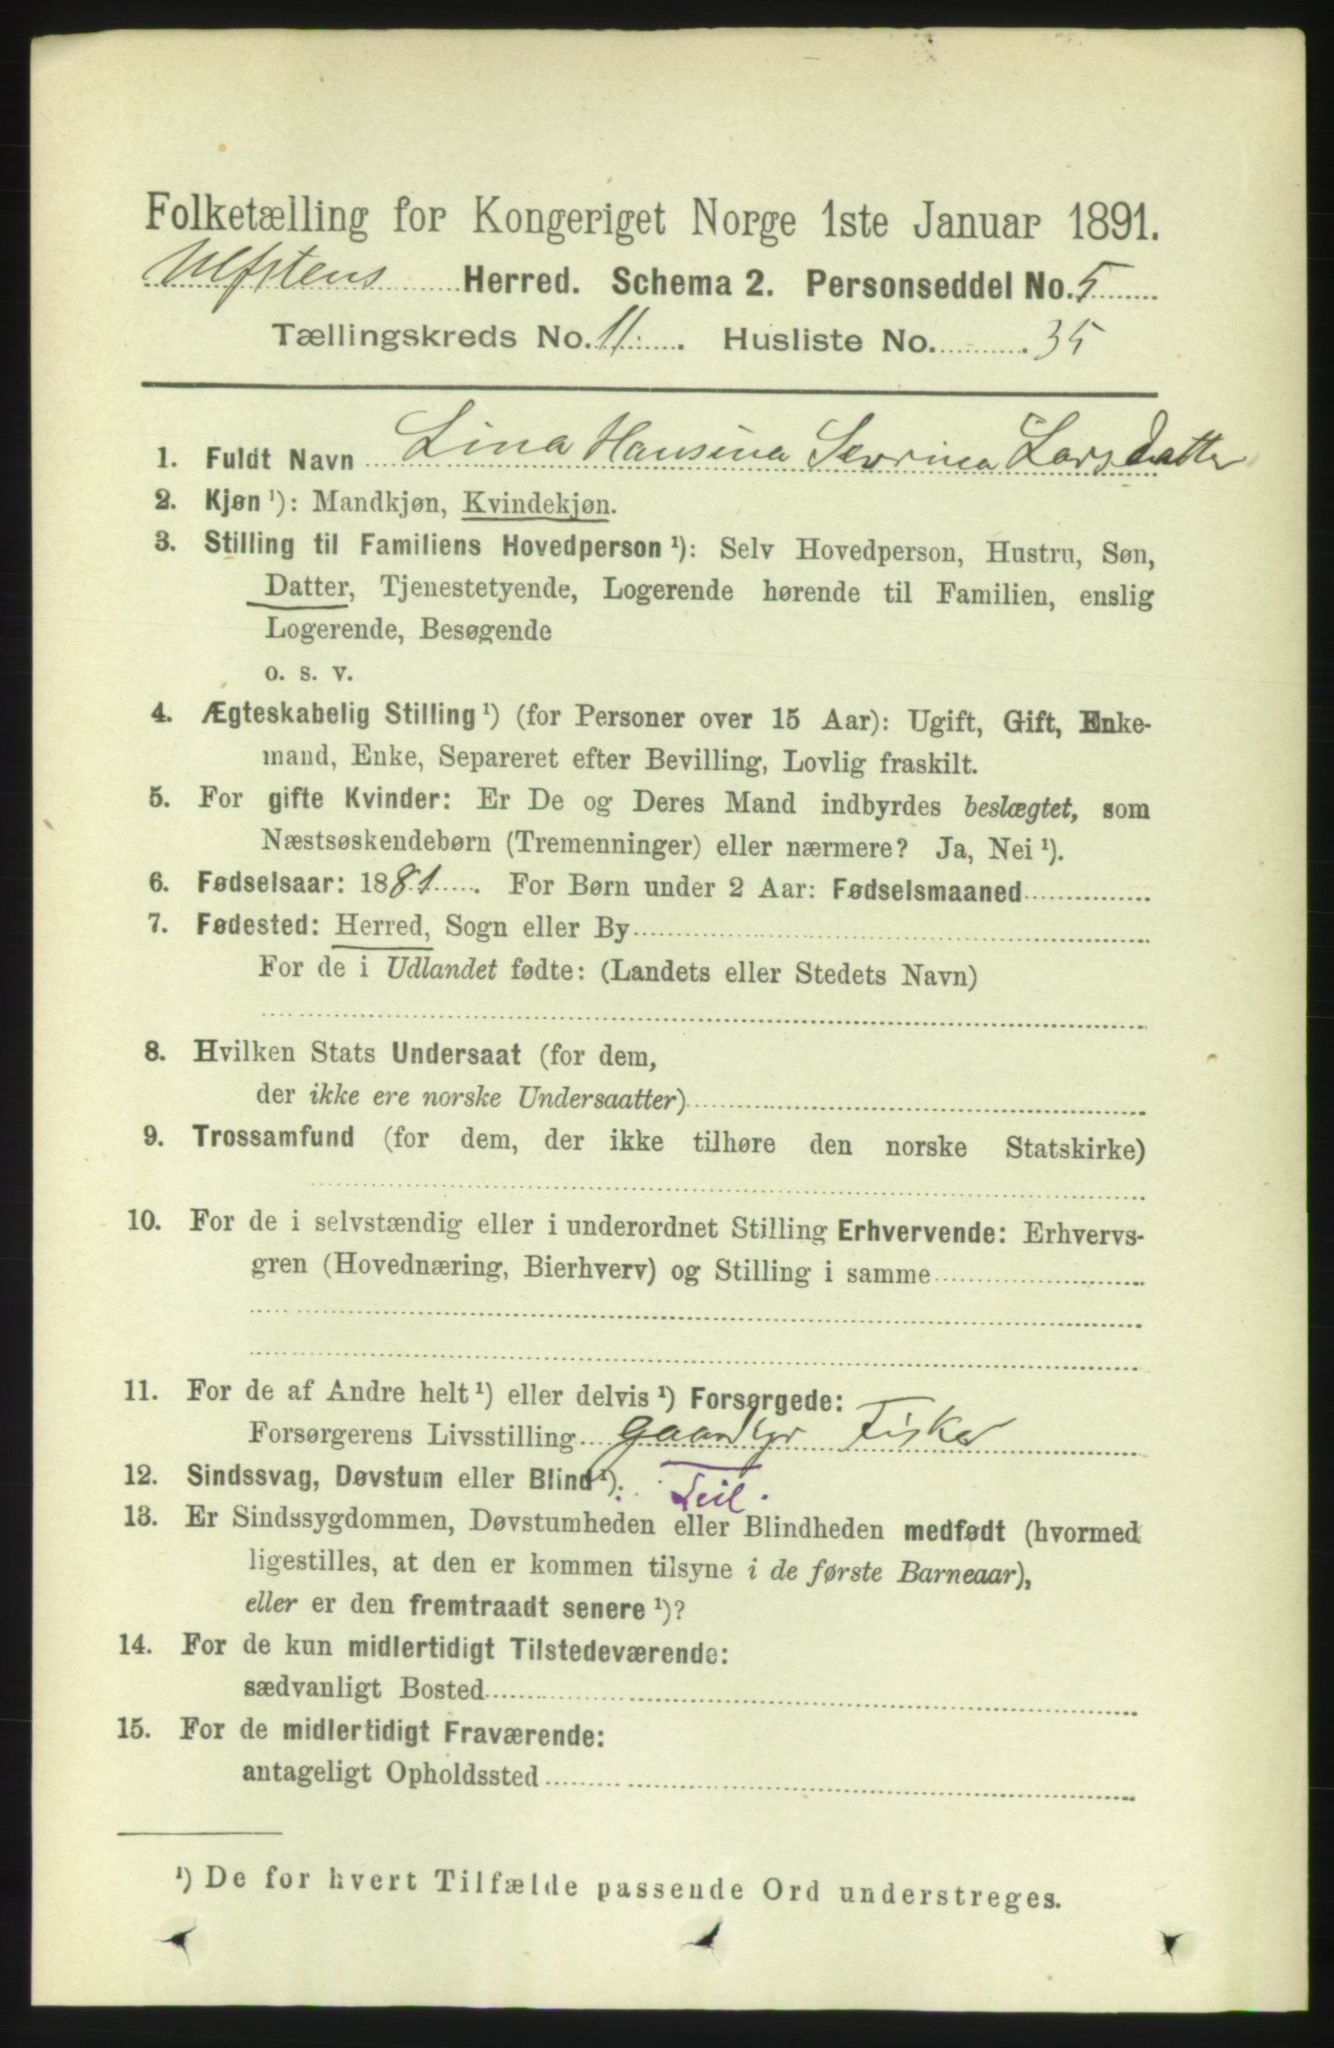 Folketælling for Kongeriget Norge 1ste Januar 1891.
Ulfstens Herred. Schema 2. Personseddel No. 5
Tællingskreds No. 11. Husliste No. 35
1. Fuldt Navn Lina Hansina Sevrina Larsdatter
2. Kjøn ¹): Mandkjøn, Kvindekjøn.
3. Stilling til Familiens Hovedperson ¹): Selv Hovedperson, Hustru, Søn,
Datter, Tjenestetyende, Logerende hørende til Familien, enslig
Logerende, Besøgende
o. s. v.
4. Ægteskabelig Stilling ¹) (for Personer over 15 Aar): Ugift, Gift, Enke-
mand, Enke, Separeret efter Bevilling, Lovlig fraskilt.
5. For gifte Kvinder: Er De og Deres Mand indbyrdes beslægtet, som
Næstsøskendebørn (Tremenninger) eller nærmere? Ja, Nei ¹).
6. Fødselsaar: 1881. For Børn under 2 Aar: Fødselsmaaned
7. Fødested: Herred, Sogn eller By
For de i Udlandet fødte: (Landets eller Stedets Navn)
8. Hvilken Stats Undersaat (for dem,
der ikke ere norske Undersaatter)
9. Trossamfund (for dem, der ikke tilhøre den norske Statskirke)
10. For de i selvstændig eller i underordnet Stilling Erhvervende: Erhvervs-
gren (Hovednæring, Bierhverv) og Stilling i samme
11. For de af Andre helt ¹) eller delvis ¹) Forsørgede:
Forsørgerens Livsstilling Fisker
12. Sindssvag, Døvstum eller Blind ¹).
13. Er Sindssygdommen, Døvstumheden eller Blindheden medfødt (hvormed
ligestilles, at den er kommen tilsyne i de første Barneaar),
eller er den fremtraadt senere ¹)?
14. For de kun midlertidigt Tilstedeværende:
sædvanligt Bosted
15. For de midlertidigt Fraværende:
antageligt Opholdssted
¹) De for hvert Tilfælde passende Ord understreges.